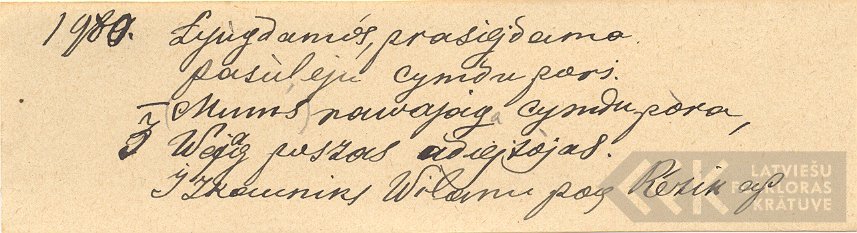 1980. Lyugdamós, prasiejdama
pasùleju cymdu pori.
(Mums) nawajag cymdu pora,
Wajag poszas adiejtòjas.
J Zkauniks Wilanu pog Rezik ap
LATVIEŠU
FOLKLORAS
KRĀTUVE